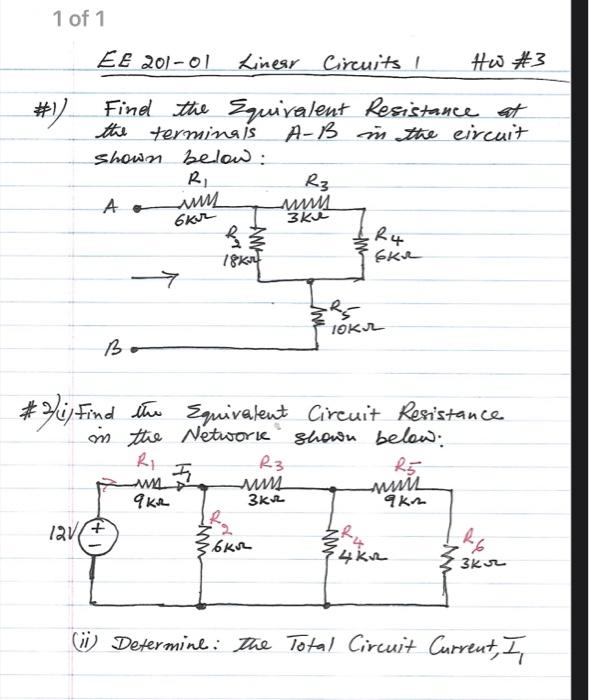 1 of 1
EE 201-01 Linear Circuits 1 HW #3
#1) Find the Equivalent Resistance at
the terminals A-B in the circuit
shown below:
R1 R3
A
6KΩ 3KΩ
R2 R4
18KΩ 6KΩ
R5
10KΩ
B
#2/(i) Find the Equivalent Circuit Resistance
in the Network shown below:
R1 I1 R3 R5
9KΩ 3KΩ 9KΩ
12V + − R2 R4 R6
6KΩ 4KΩ 3KΩ
(ii) Determine: the Total Circuit Current, I1